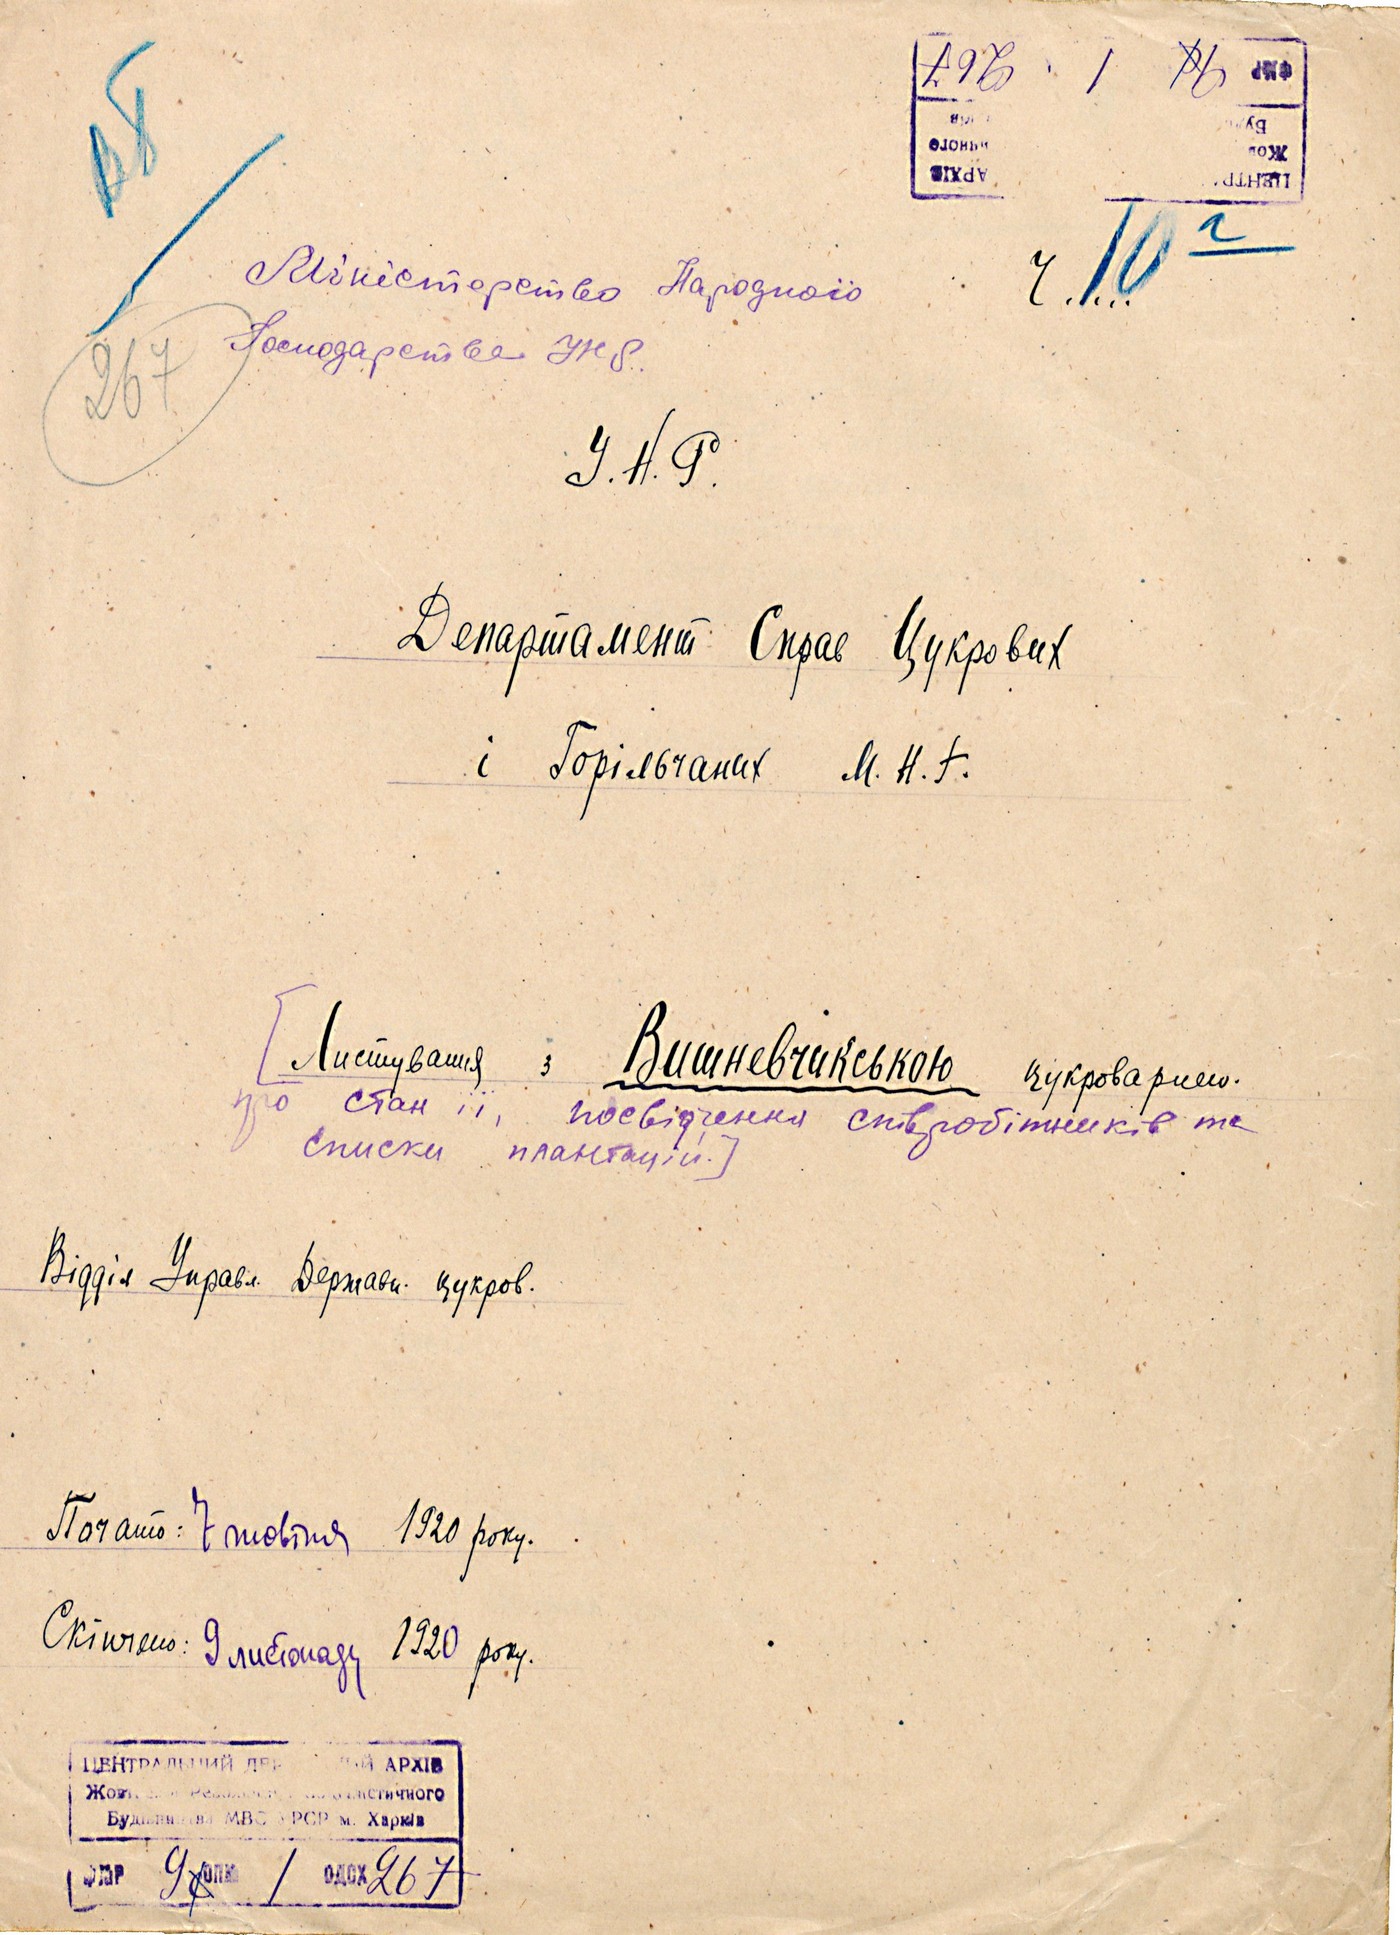 267
Ч. 10 г
Міністерство Народного
Господарства УНР.
У.Н.Р.
Департамент Справ Цукрових
і Горільчаних М.Н.Г.
[Листування з Вишневчикською цукроварнею.
про стан її, посвідчення співробітників та
списки плантацій.]
Відділ Управл. Державн. цукров.
Почато: 7 жовтня 1920 року.
Скінчено: 9 листопаду 1920 року.
ЦЕНТРАЛЬНИЙ АРХІВ
Будівництва МВС УРСР м. Харків
1 ОДСХ 267